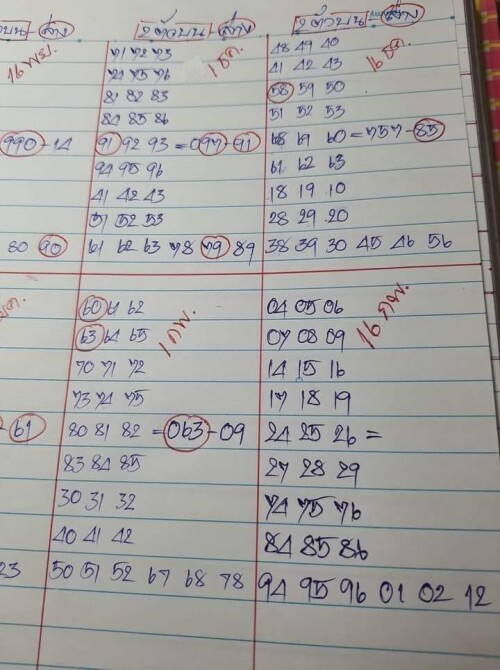 2 ตัวบน - ล่าง
2 ตัวบน = ล่าง
16 พย.
990 - 14
80 90
1 ธค.
71 72 73
74 75 76
81 82 83
84 85 86
91 92 93 = 097 - 91
94 95 96
41 42 43
51 52 53
61 62 63 78 79 89
16 ธค.
48 49 40
41 42 43
58 59 50
51 52 53
68 69 60 = 757 - 85
61 62 63
18 19 10
28 29 20
38 39 30 45 46 56
61
23
1 กพ.
60 61 62
63 64 65
70 71 72
73 74 75
80 81 82 = 063 - 09
83 84 85
30 31 32
40 41 42
50 51 52 67 68 78
16 กพ.
04 05 06
07 08 09
14 15 16
17 18 19
24 25 26 =
27 28 29
74 75 76
84 85 86
94 95 96 01 02 12